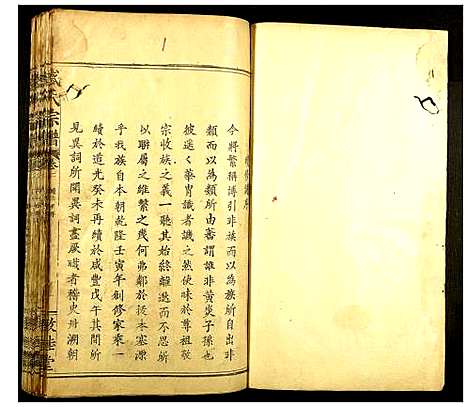 今將繁稱博引非族而以為族所自出非
類而以為類所由蕃謂誰非黃炎子孫也
彼遙遙華冑識者譏之然使昧於尊祖敬
宗收族之義一聽其始終離渙而不思所
以聯屬之維繫之幾何弗鄰於撥本塞源
乎我族自本朝乾隆壬寅年創修家乘一
續於道光癸未再續於咸豐戊午其間所
見異詞所聞異詞盡厥職者稽史冊溯朝
氏宗譜
卷
敦
堂